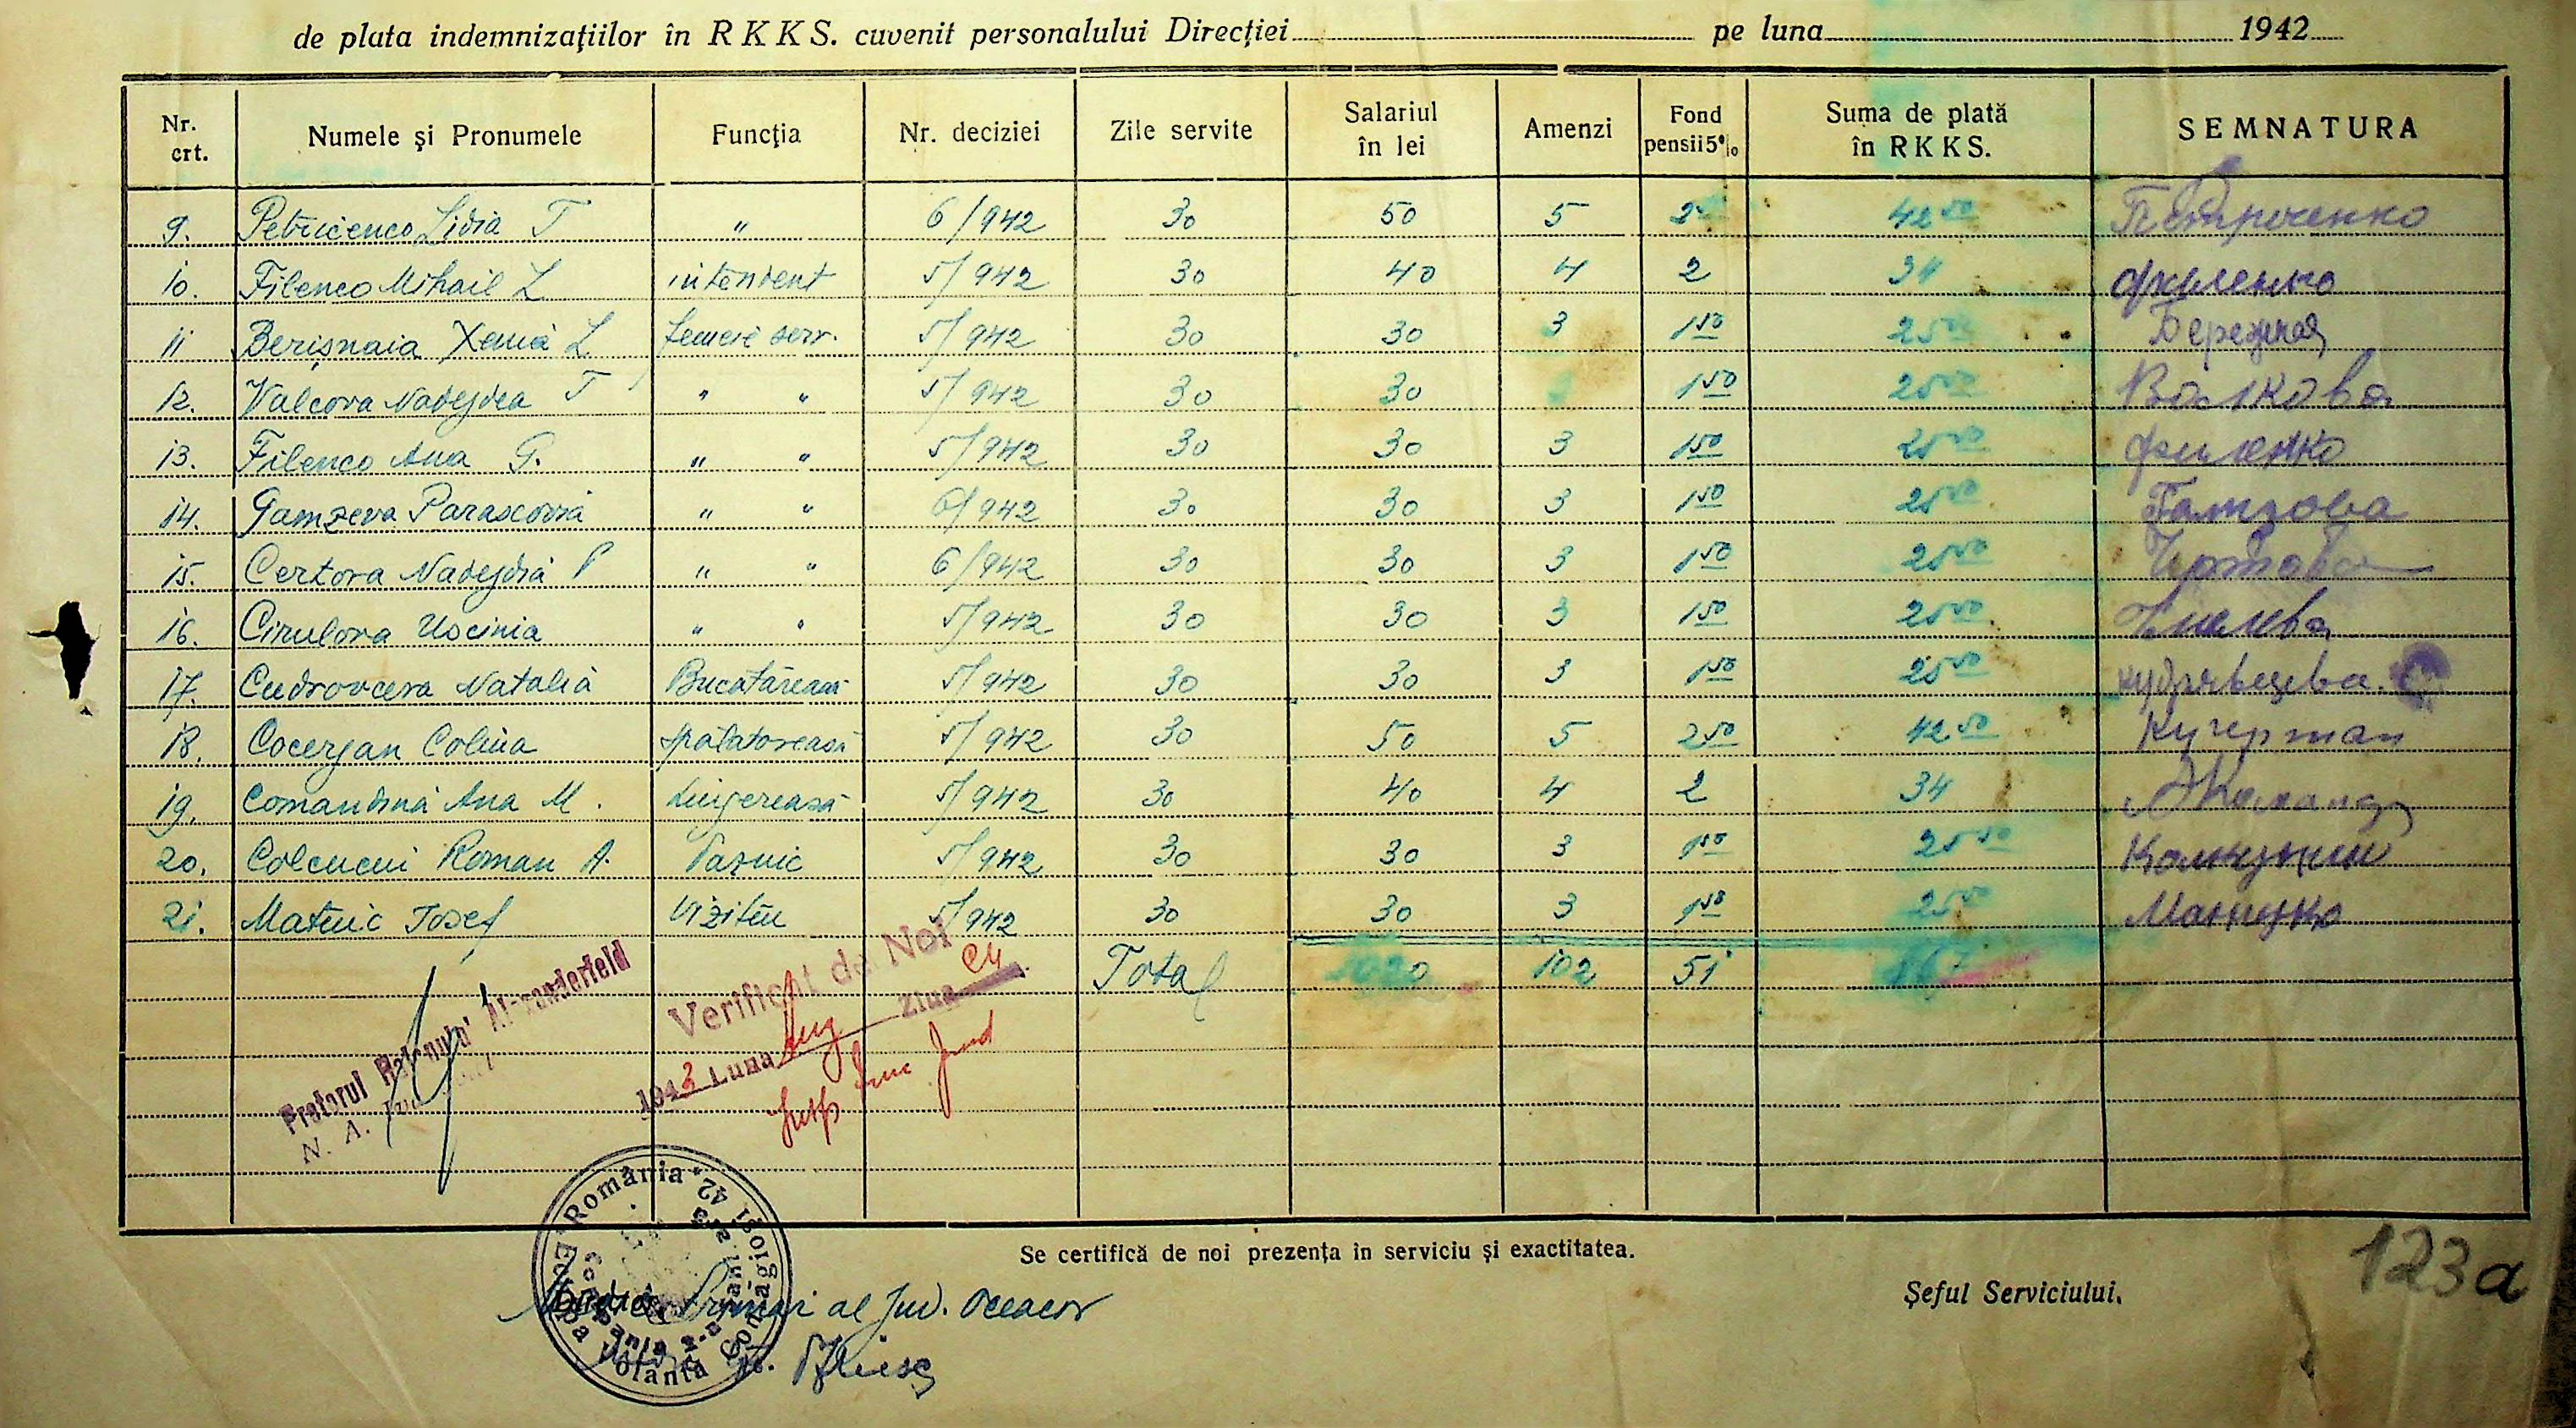 de plata indemnizațiilor în R K K S. cuvenit personalului Direcției pe luna 1942
Nr. crt. Numele și Pronumele Funcția Nr. deciziei Zile servite Salariul în lei Amenzi Fond pensii 5% Suma de plată în R K K S. SEMNATURA
9. Petricenco Lidia T " 6/942 30 50 5 2 42 50 Петриченко
10. Filenco Mihail L intendent 5/942 30 40 4 2 34 Филенко
11 Berișnaia Xenia L femeie serv. 5/942 30 30 3 1 50 25 50 Бережная
12. Valcova Nadejdea T " " 5/942 30 30 1 50 25 50 Валкова
13. Filenco Ana G. " " 5/942 30 30 3 1 50 25 50 Филенко
14. Gamzeva Parascovia " " 6/942 30 30 3 1 50 25 50 Гамзова
15. Certova Nadejdia P " " 6/942 30 30 3 1 50 25 50 Чертова
16. Cirulova Uscinia " " 5/942 30 30 3 1 50 25 50
17. Cudrovcera Natalia Bucatăreasă 5/942 30 30 3 1 50 25 50 Кудрявцева.
18. Cocerjan Colina spălatoreasă 5/942 30 50 5 2 50 42 50 Кучерман
19. Comandina Ana M. Lingereasă 5/942 30 40 4 2 34
20. Colcucui Roman A. Paznic 5/942 30 30 3 1 50 25 50
21. Matuic Iosef Vizitiu 5/942 30 30 3 1 50 25 50
Total 1020 102 51 867
Pretorul Raionului Alexanderfeld
N. A.
Verificat de Noi
1943 Luna Aug Ziua
România
Echipa Volantă
Se certifică de noi prezența in serviciu și exactitatea.
123a
Șeful Serviciului.
Primar al Jud. Oceacov